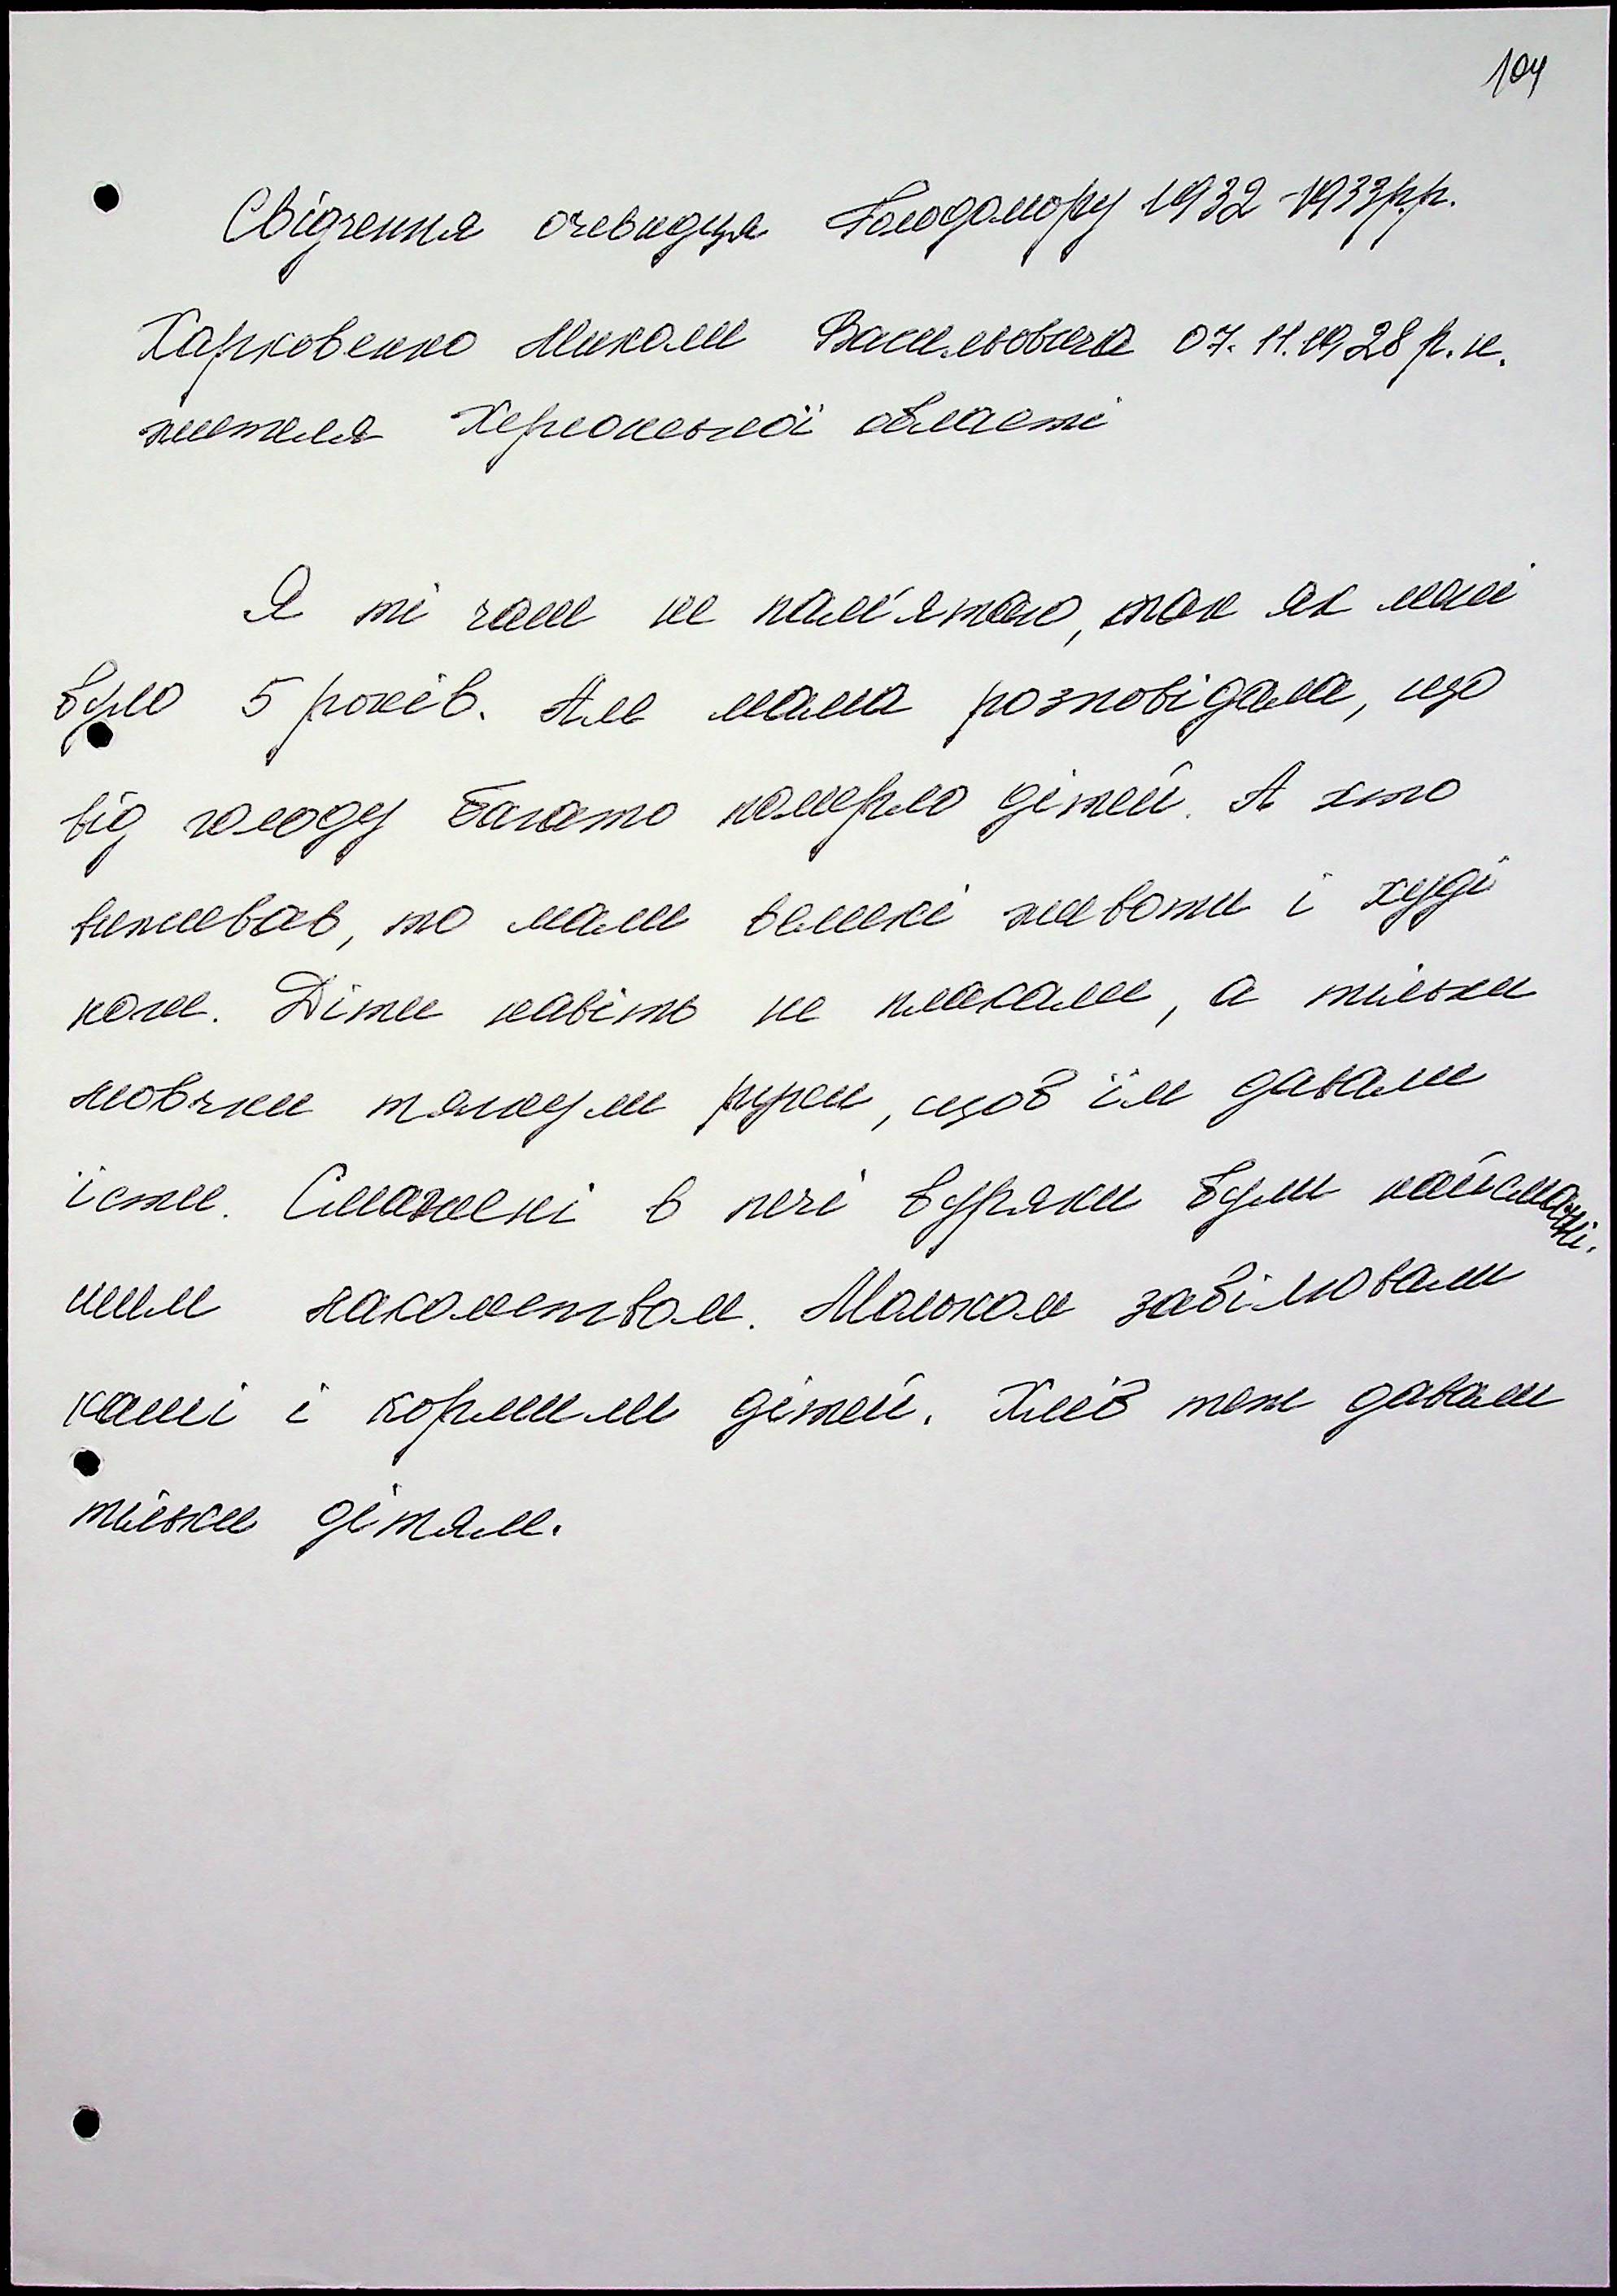 104
Свідчення очевидця Голодомору 1932-1933рр.
Харковенко Миколи Васильовича 07.11.1928 р.н.
жителя Херсонської області
Я ті часи не пам'ятаю, так як мені
було 5 років. Але мама розповідала, що
від голоду багато померло дітей. А хто
виживав, то мали великі животи і худі
ноги. Діти навіть не плакали, а тільки
мовчки тягнули руки, щоб їм давали
їсти. Смажені в печі буряки були найсмачні-
шим лакомством. Молоком забілювали
каші і кормили дітей. Хліб теж давали
тільки дітям.